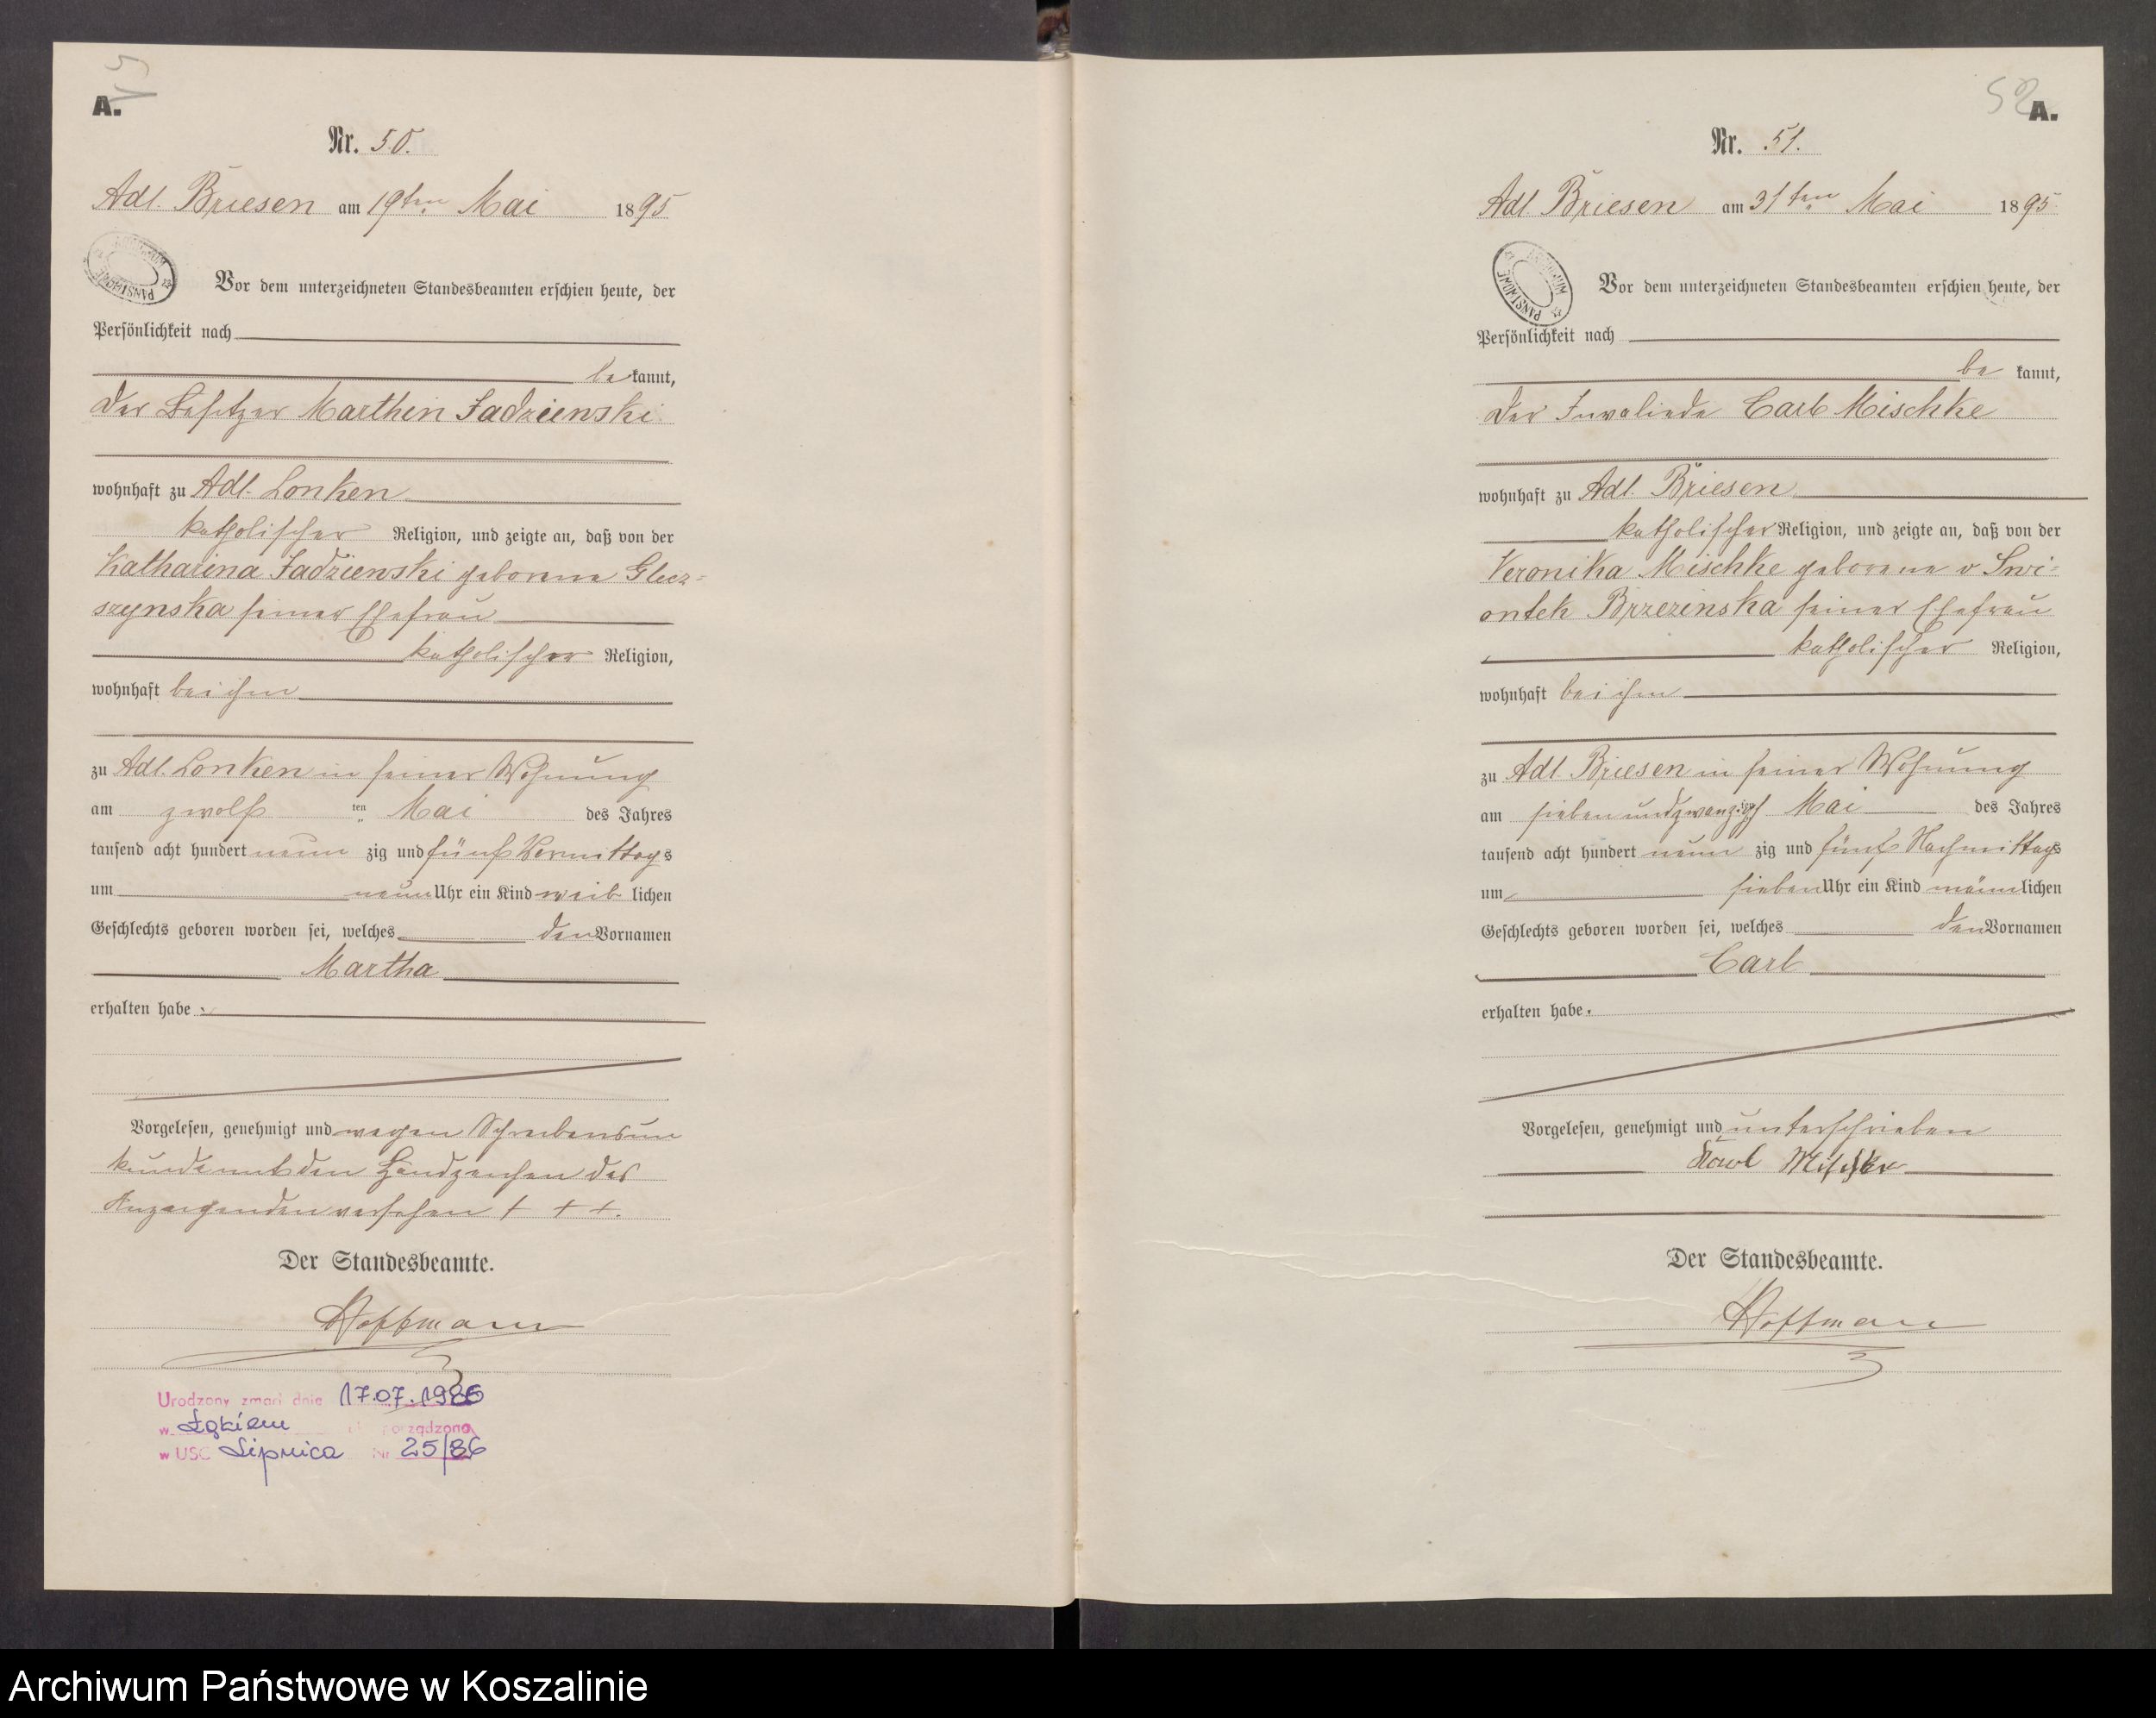 A.
Nr. 50.
Adl. Briesen am 19ten Mai 1895
Vor dem unterzeichneten Standesbeamten erschien heute, der
Persönlichkeit nach
be kannt,
der Besitzer Marthin Jadzienski
wohnhaft zu Adl. Lonken
katholischer Religion, und zeigte an, daß von der
Katharina Jadzienski geborene Glecz=
szynska seiner Ehefrau
katholischer Religion,
wohnhaft bei ihm
zu Adl. Lonken in seiner Wohnung
am zwölf ten Mai des Jahres
tausend acht hundert neun zig und fünf Vormittags
um neun Uhr ein Kind weib lichen
Geschlechts geboren worden sei, welches den Vornamen
Martha
erhalten habe.
Vorgelesen, genehmigt und wegen Schreibensun
kunde mit den Handzeichen des
Anzeigenden versehen + + +.
Der Standesbeamte.
Hoffmann
Urodzony zmarł dnia 17.07.1986
w Łąkiem porządzono
w USC Lipnica Nr 25/86
52
A.
Nr. 51.
Adl. Briesen am 31ten Mai 1895
ARCHIWUM PAŃSTWOWE
Vor dem unterzeichneten Standesbeamten erschien heute, der
Persönlichkeit nach
be kannt,
der Invaliede Carl Mischke
wohnhaft zu Adl. Briesen
katholischer Religion, und zeigte an, daß von der
Veronika Mischke geborene v Swi=
ontek Brzezinska seiner Ehefrau
katholischer Religion,
wohnhaft bei ihm
zu Adl Briesen in seiner Wohnung
am siebenundzwanzigst Mai des Jahres
tausend acht hundert neun zig und fünf Nachmittags
um sieben Uhr ein Kind männlichen
Geschlechts geboren worden sei, welches den Vornamen
Carl
erhalten habe.
Vorgelesen, genehmigt und unterschrieben
Karl Mischke
Der Standesbeamte.
Hoffmann
Archiwum Państwowe w Koszalinie